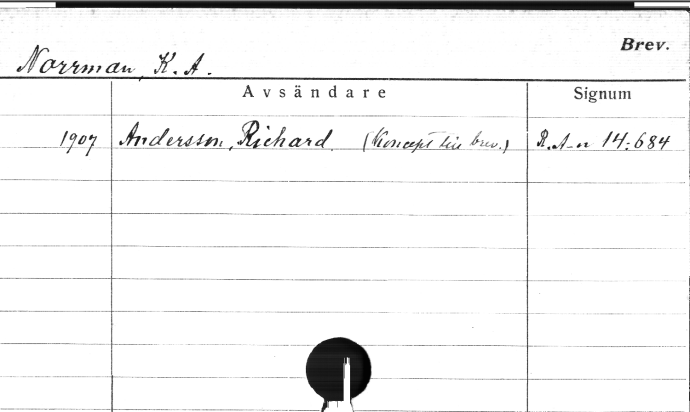 Brev.
Norrman, K. A.
Avsändare Signum
1907 Andersson, Richard. (Koncept till brev.) R. A-n 14:684